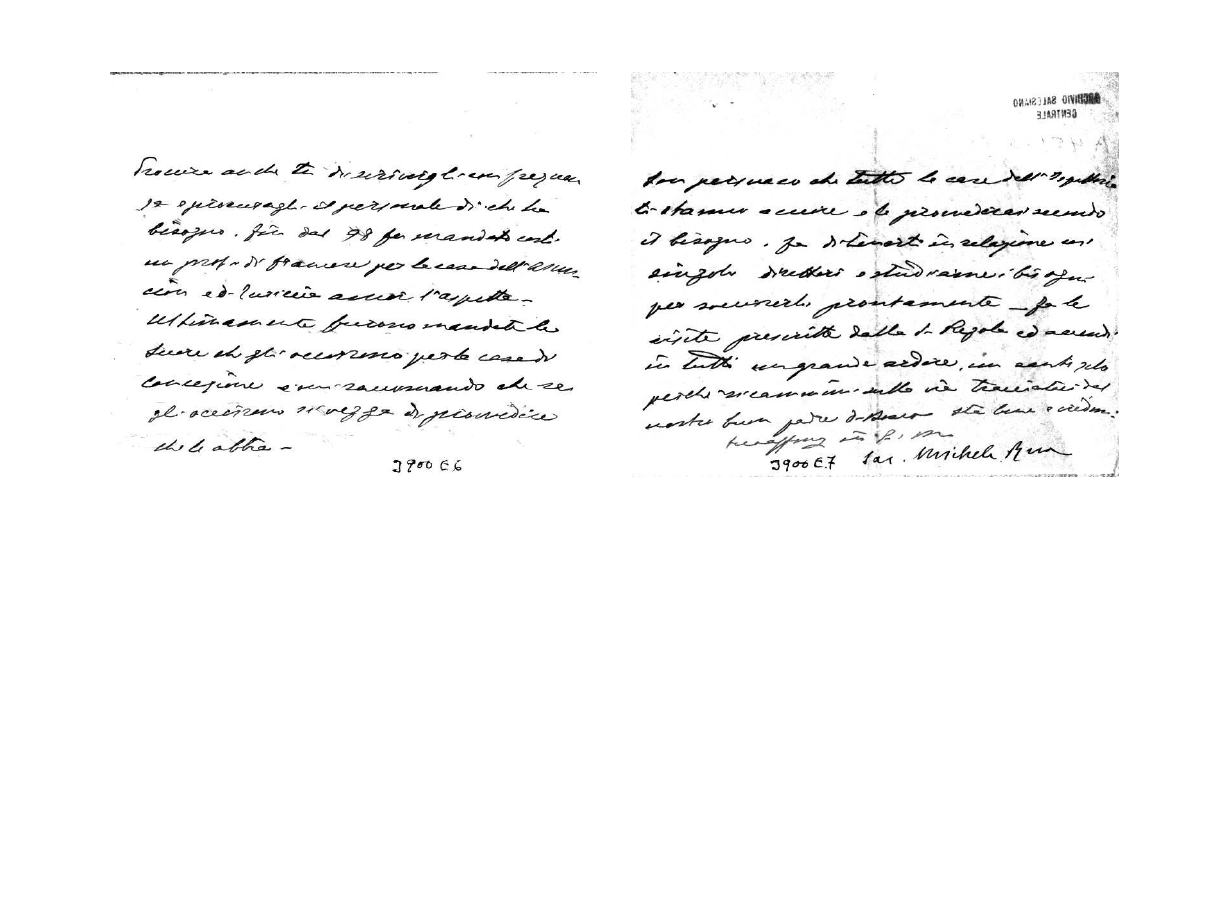 Procura anche tu di scrivergli con frequen
za e procuragli il personale di che ha
bisogno. Fin dal 98 fu mandato costì
un prof. di francese per la casa dell'Assun
cion ed il ancor l'aspetta –
Ultimamente furono mandate le
Suore che gli occorrono per la casa di
Concezione e mi raccomando che se
gli occorrono si vegga di provvedere
che le abbia –
3900 E6
ARCHIVIO SALESIANO
CENTRALE
Son persuaso che tutte le case dell'Ispettoria
ti stanno a cuore e le provvederai secondo
il bisogno. Fa di tenerti in relazione coi
singoli direttori e studiarne i bisogni
per soccorrerli prontamente – fa le
visite prescritte dalla S. Regola ed accendi
in tutti un grande ardore, un santo zelo
perché si cammini sulla via tracciataci dal
nostro buon padre D. Bosco sta bene e credimi
in
3900 E7 Sac. Michele Rua